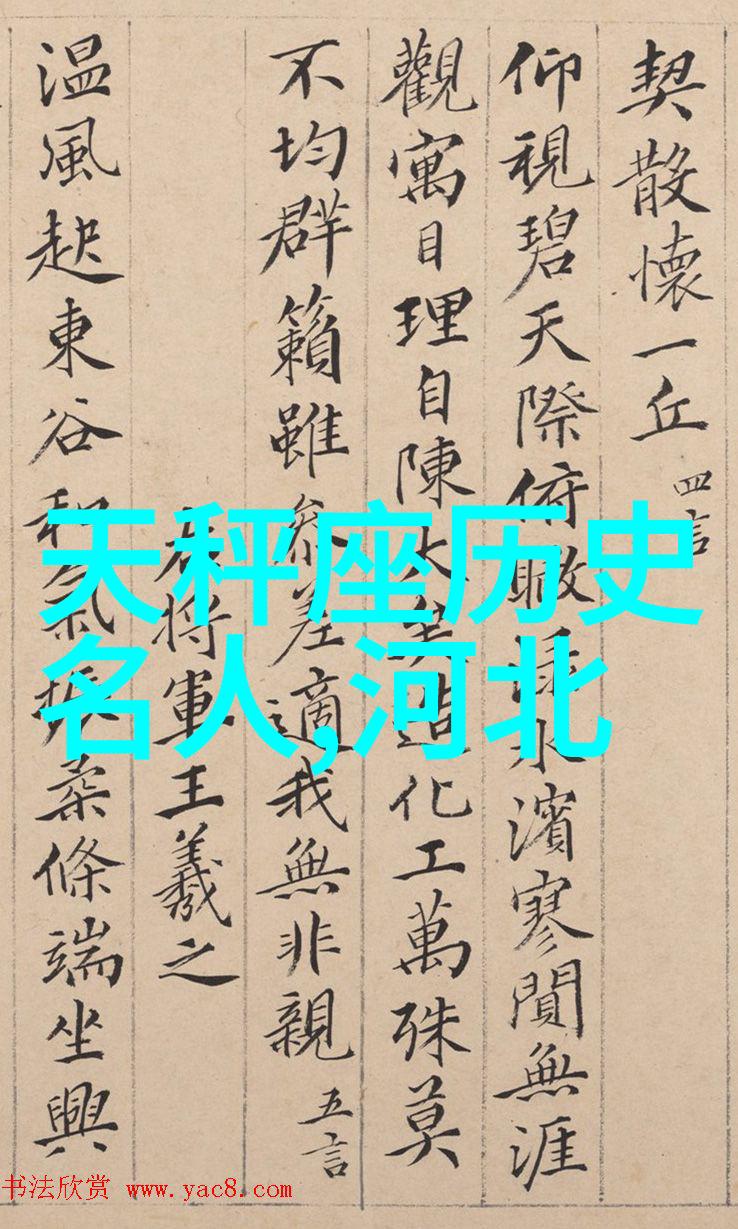 契散懷一丘 四言
仰視碧天際俯瞰淥水濱寥閴無涯
觀寓目理自陳大矣造化工萬殊莫
不均群籟雖參差適我無非親 五言
右將軍王羲之
温風起東谷和氣振柔條端坐興
天秤座历史
名人,河北
书法欣赏 www.yac8.com